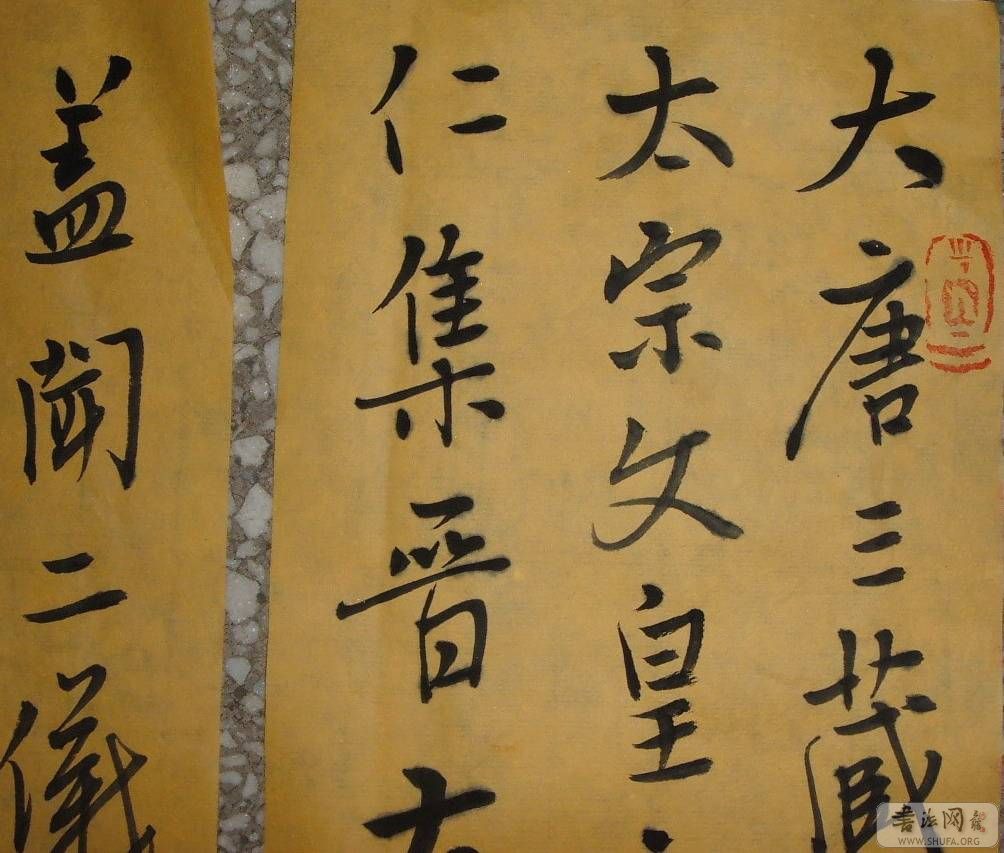 大唐三藏
太宗文皇
仁集晋右
盖闻二仪
书法网
WWW.SHUFA.ORG